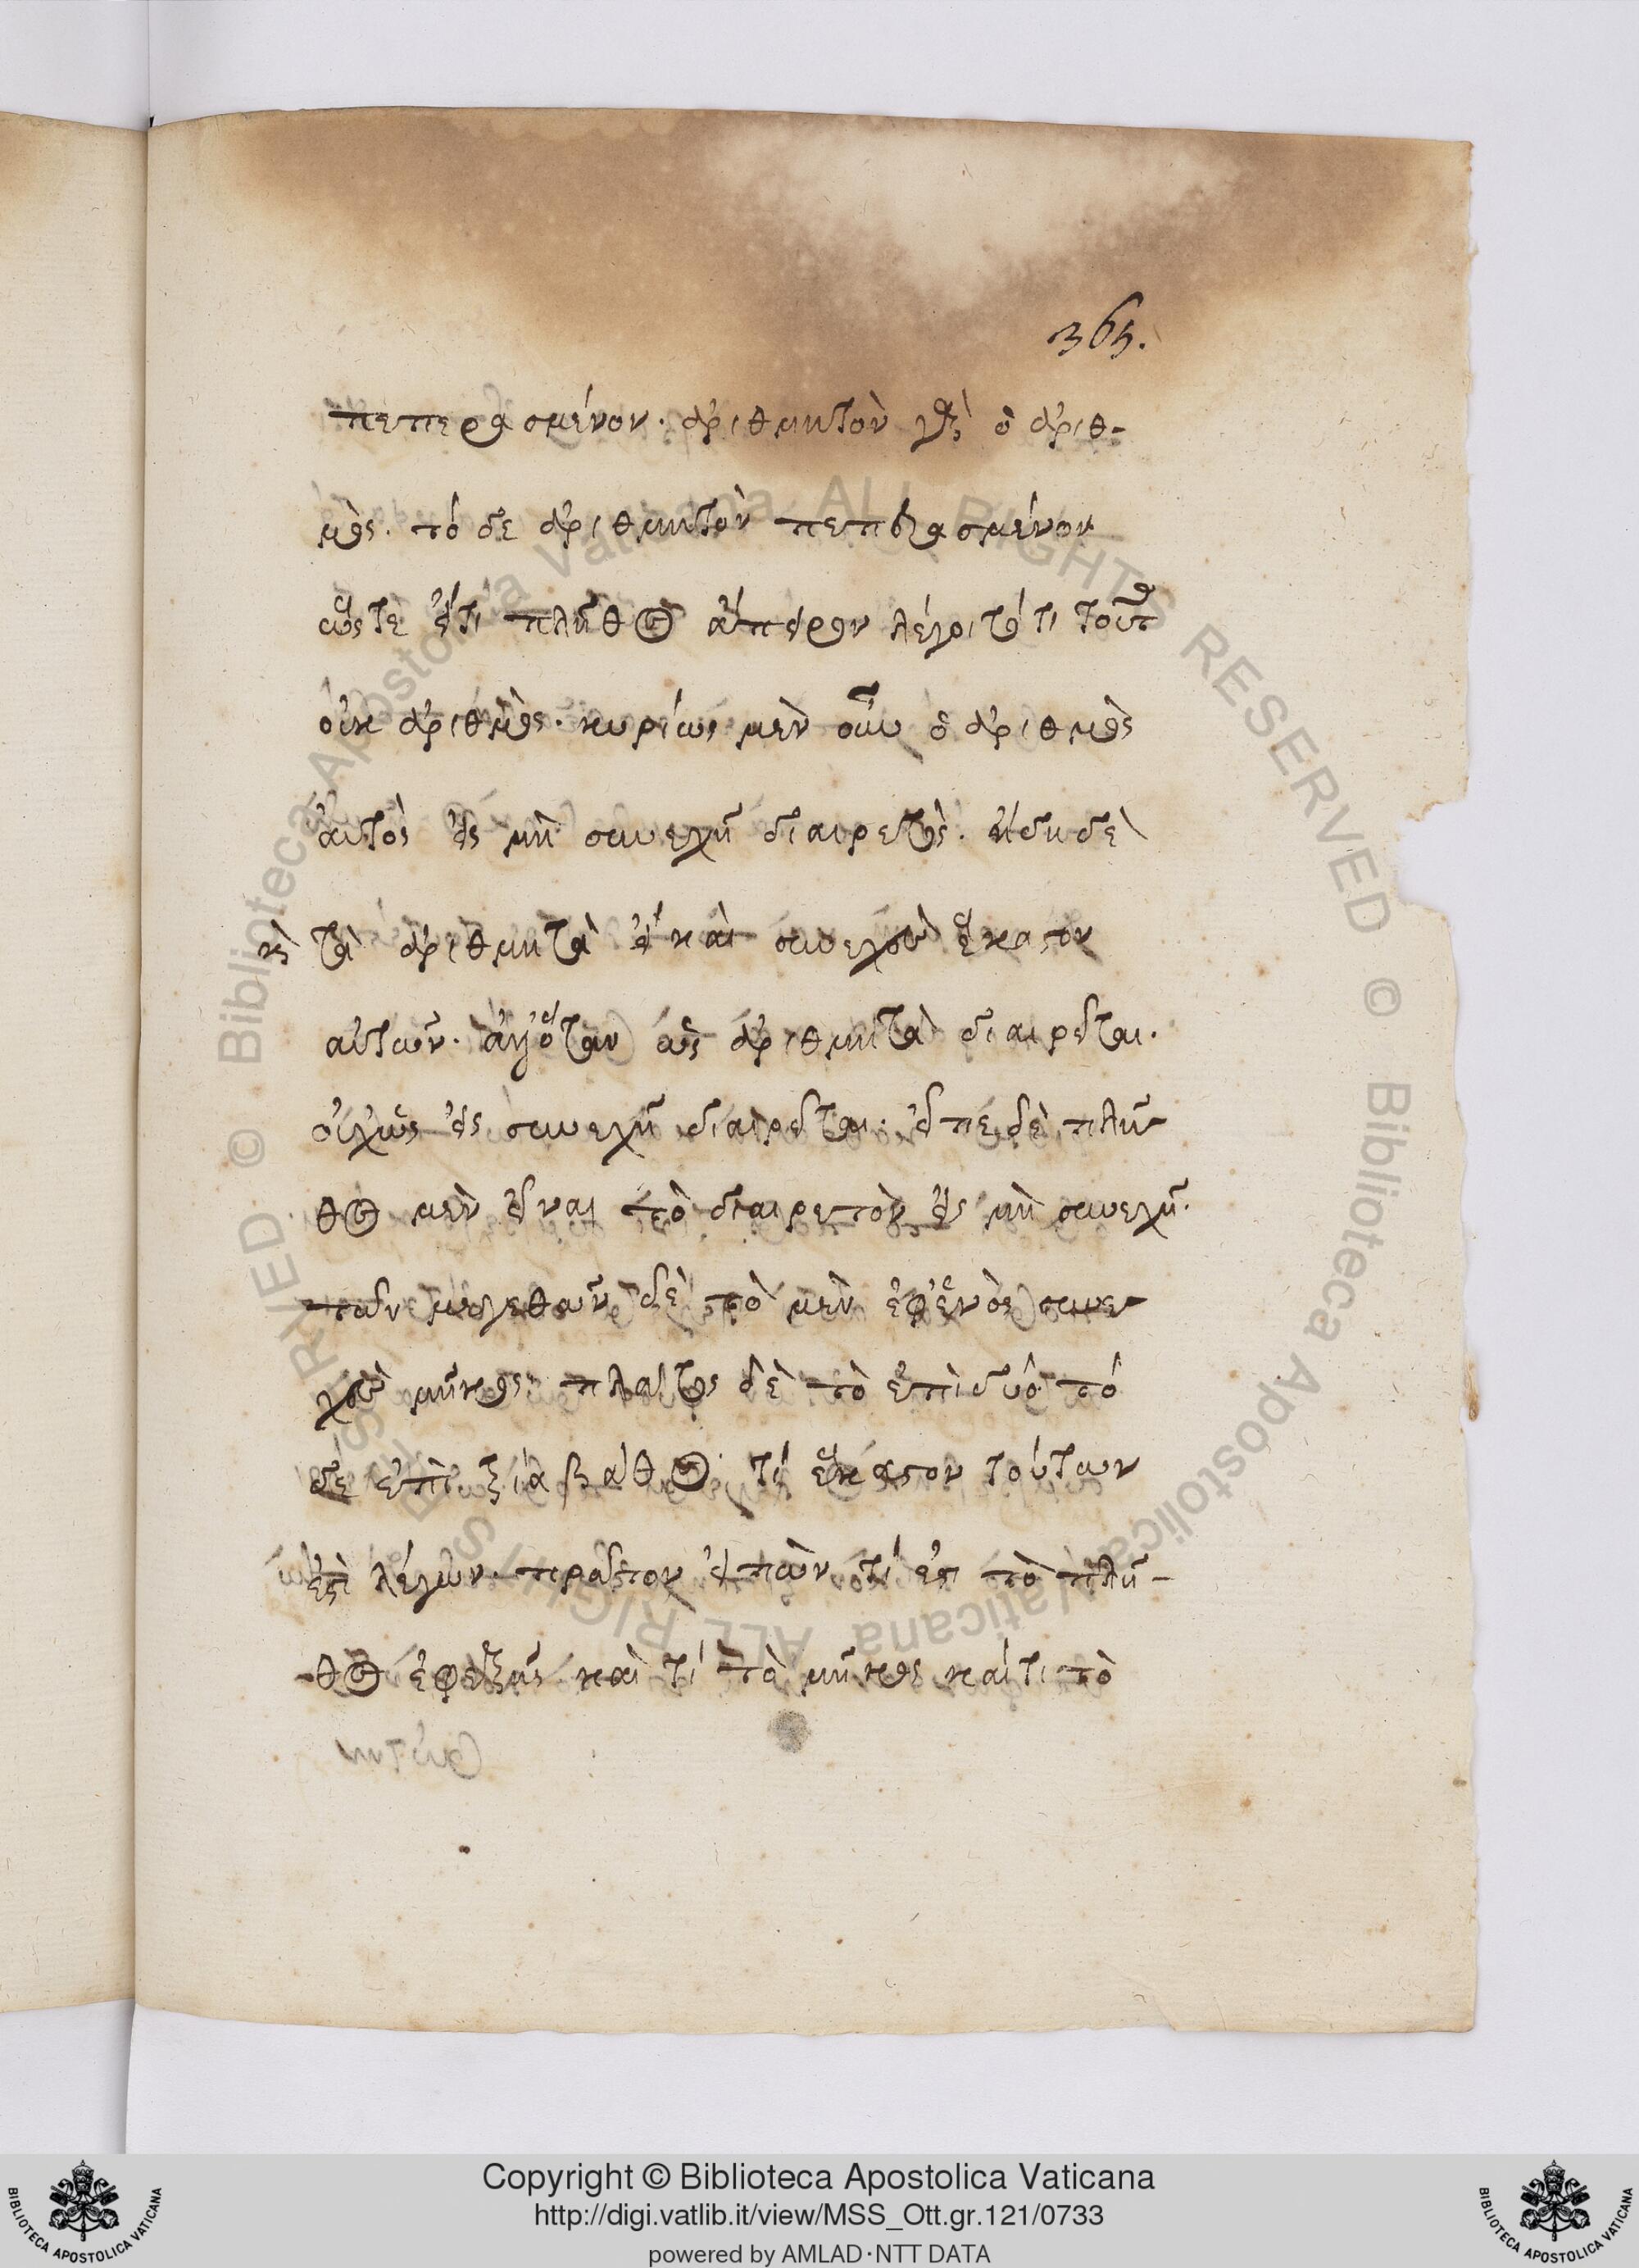 365.
πεπερασμένον. ἀριθμητὸν γὰρ ὁ ἀριθ-
μὸς. τό δε ἀριθμητὸν πεπερασμένον
ὥςτε ἔτι πλῆθος ἄπειρον λέγοι τότι τοῦτο
οὐκ ἀριθμὸς. κυρίως μὲν οὖν ὁ ἀριθμὸς
ἀυτὸς εἰς μὴ συνεχῆ διαιρετὸς. ἤδη δὲ
κὶ τὰ ἀριθμητὰ εἰ καὶ συνεχὲς ἕκαστον
αὐτῶν. ἀλλ' ὅταν ὡς ἀριθμητὰ διαιρεῖται.
οὐχ ὡς εἰς συνεχῆ διαιρεῖται. εἶπε δὲ πλῆ
θος μὲν εἶναι τὸ διαιρετὸν εἰς μὴ συνεχῆ.
τῶν μεγεθῶν δὲ τὸ μὲν ἐφ' ἑνὸς συνε
χὲς μῆκος. πλάτος δὲ τὸ ἐπὶ δυό τό
δε ἐπὶ τρία βάθος. τί ἕκαστον τούτων
ἐστὶ λέγων. πρῶτον εἰπὼν τί ἐστι τὸ πλῆ-
θος ἐφεξῆς καὶ τί τὸ μῆκος καί τι τὸ
Copyright © Biblioteca Apostolica Vaticana
http://digi.vatlib.it/view/MSS_Ott.gr.121/0733
powered by AMLAD·NTT DATA
BIBLIOTECA APOSTOLICA VATICANA
BIBLIOTECA APOSTOLICA VATICANA
© Biblioteca Apostolica Vaticana ALL RIGHTS RESERVED
© Biblioteca Apostolica Vaticana ALL RIGHTS RESERVED